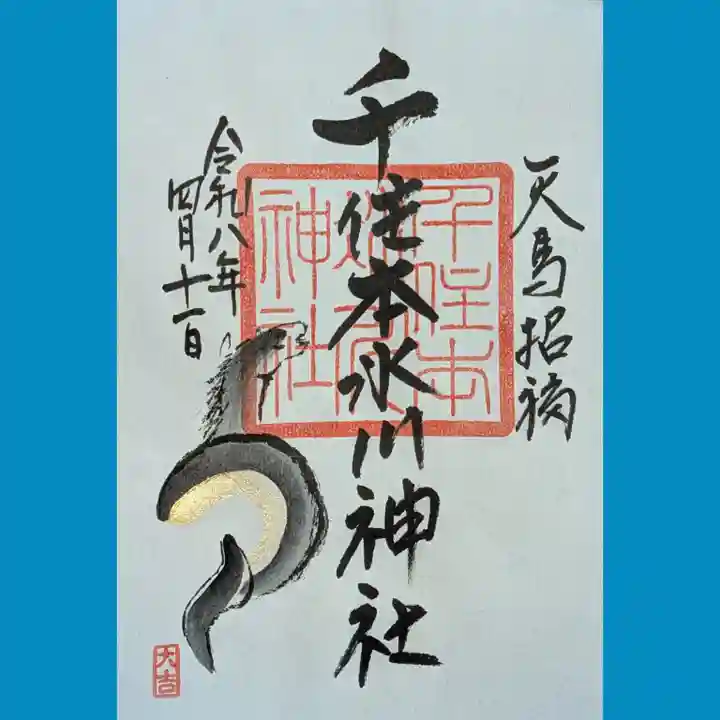 天馬招福
千住本氷川神社
千住本
氷川
神社
令和八年
四月十一日
大吉